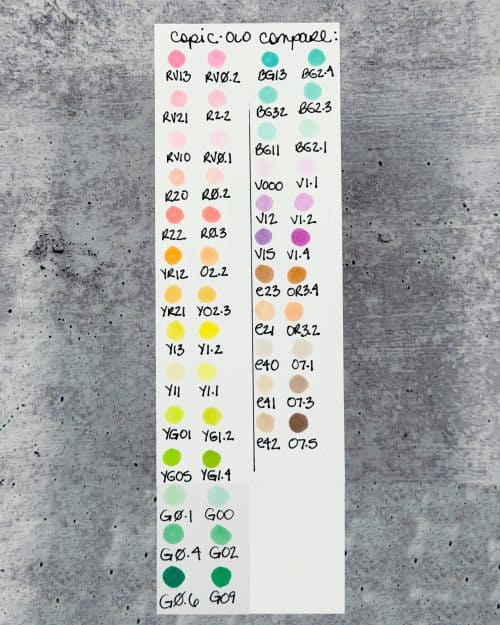 copic · olo compare:
RV13 RVØ.2
RV21 R2.2
RV10 RVØ.1
R20 RØ.2
R22 RØ.3
YR12 O2.2
YR21 YO2.3
Y13 Y1.2
Y11 Y1.1
YG01 YG1.2
YG05 YG1.4
GØ.1 G00
GØ.4 G02
GØ.6 G09
BG13 BG2.4
BG32 BG2.3
BG11 BG2.1
V000 V1.1
V12 V1.2
V15 V1.4
e23 OR3.4
e21 OR3.2
e40 O7.1
e41 O7.3
e42 O7.5